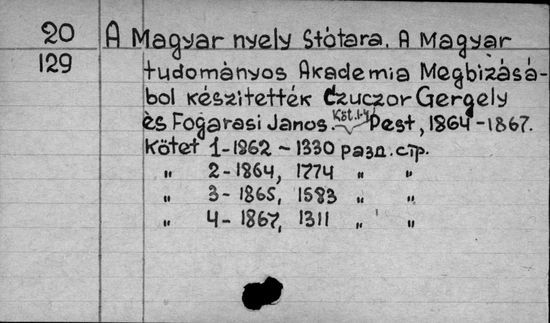 20 A Magyar nyely Stótara. A Magyar
129 tudományos Akademia Megbizásá-
ból készitették Czuczor Gergely
és Fogarasi Janos. Köt. 1-4 Pest, 1864-1867.
Kötet 1-1862 - 1330 разд. стр.
„ 2-1864, 1774 „ „
„ 3-1865, 1583 „ „
„ 4-1867, 1311 „ „